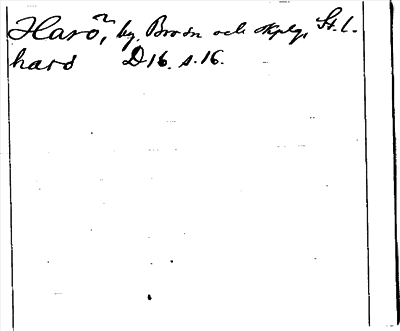 Harö, by, Brosn och skplg, St. L.
hard D16. s.16.